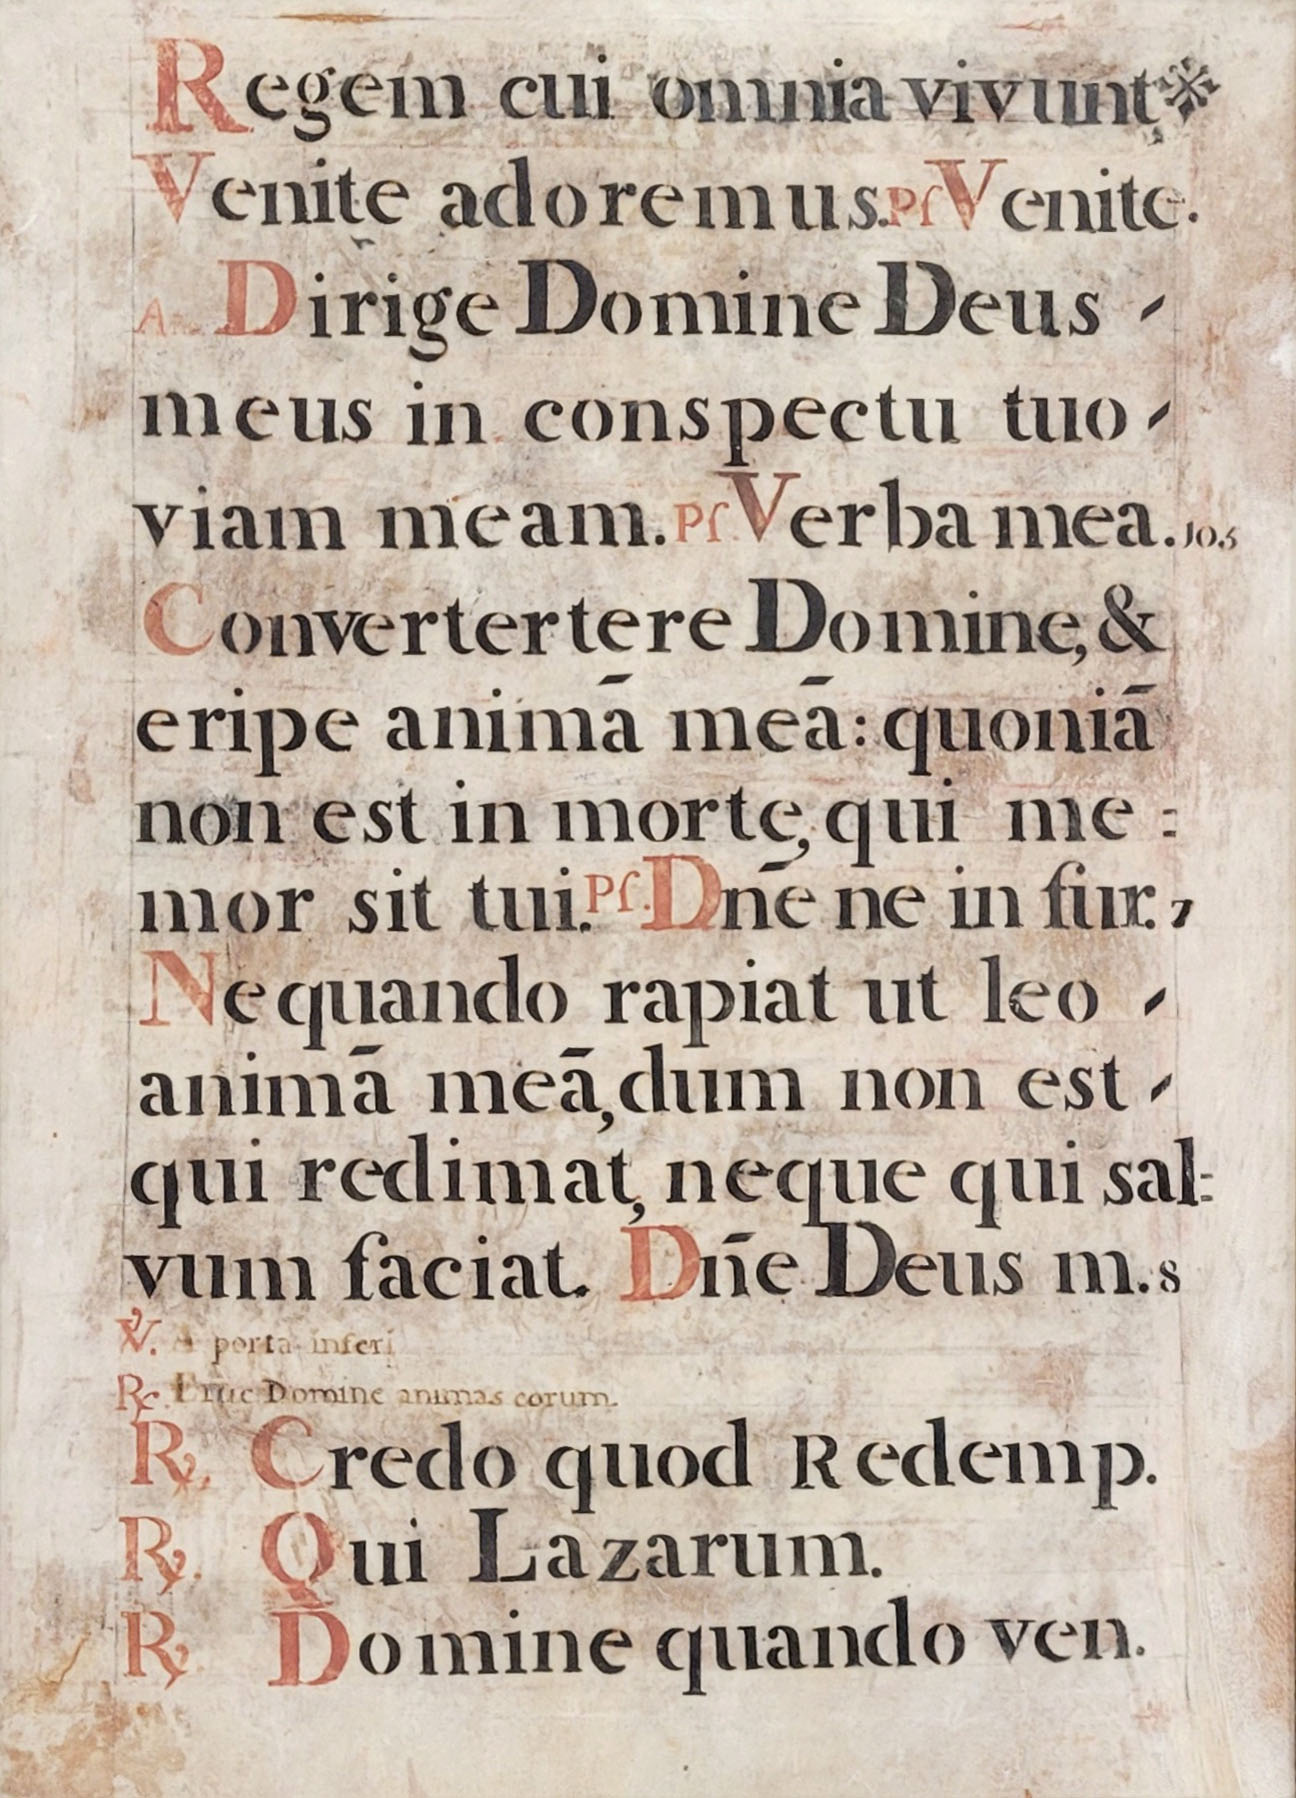 Regem cui omnia vivunt
Venite adoremus. Pſ Venite.
An. Dirige Domine Deus -
meus in conspectu tuo -
viam meam. Pſ. Verba mea. 10.5
Convertertere Domine, &
eripe animā meā: quoniā
non est in morte, qui me=
mor sit tui. Pſ. Dnē ne in fur. 7
Nequando rapiat ut leo -
animā meā, dum non est -
qui redimat, neque qui sal=
vum faciat. Dn̄e Deus m. 8
℣. A porta inferi
℟. Erue Domine animas eorum.
℟. Credo quod Redemp.
℟. Qui Lazarum.
℟. Domine quando ven.